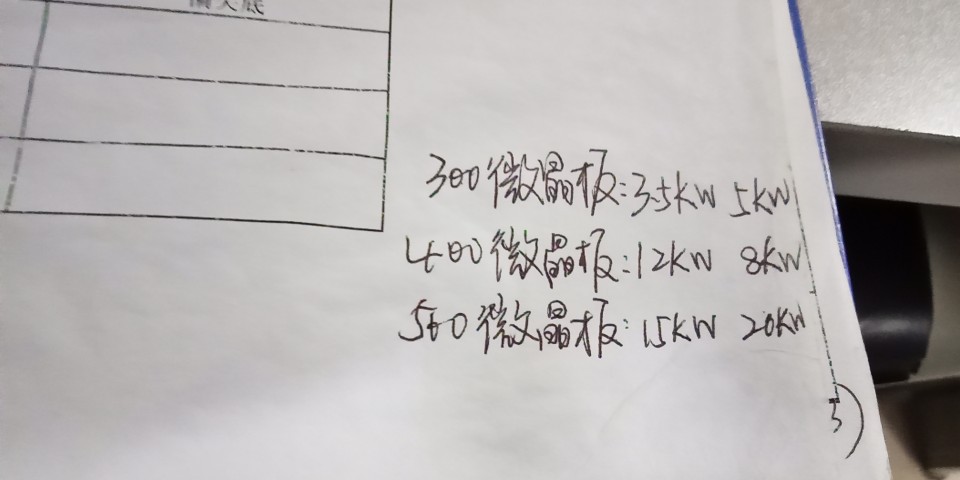 300微晶板:3.5KW 5KW
400微晶板:12KW 8KW
500微晶板:15KW 20KW